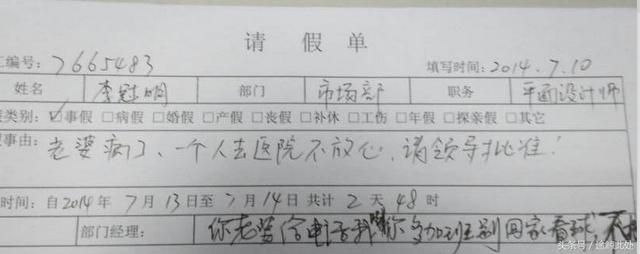 请假单
工编号：7665483 填写时间：2014.7.10
姓名 李冠明 部门 市场部 职务 平面设计师
类别：☑事假 □病假 □婚假 □产假 □丧假 □补休 □工伤 □年假 □探亲假 □其它
事由：老婆病了、一个人去医院不放心，请领导批准！
时间：自2014年7月13日至7月14日共计2天48时
部门经理：你老婆给电话我 你多加班别回家看球，不
头条号／途鸿此处